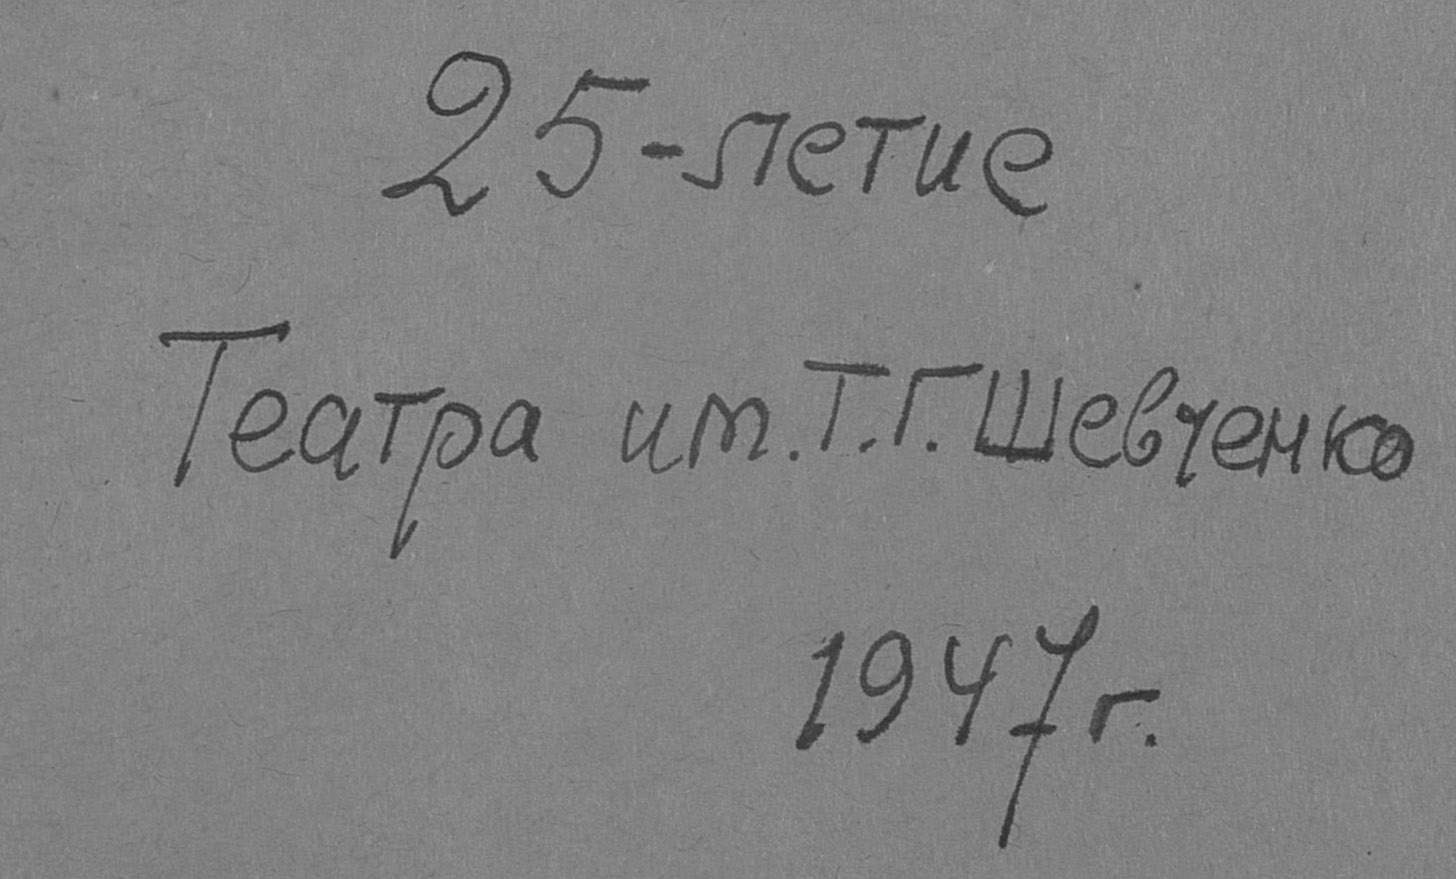 25-летие
Театра им. Т.Г. Шевченко
1947 г.